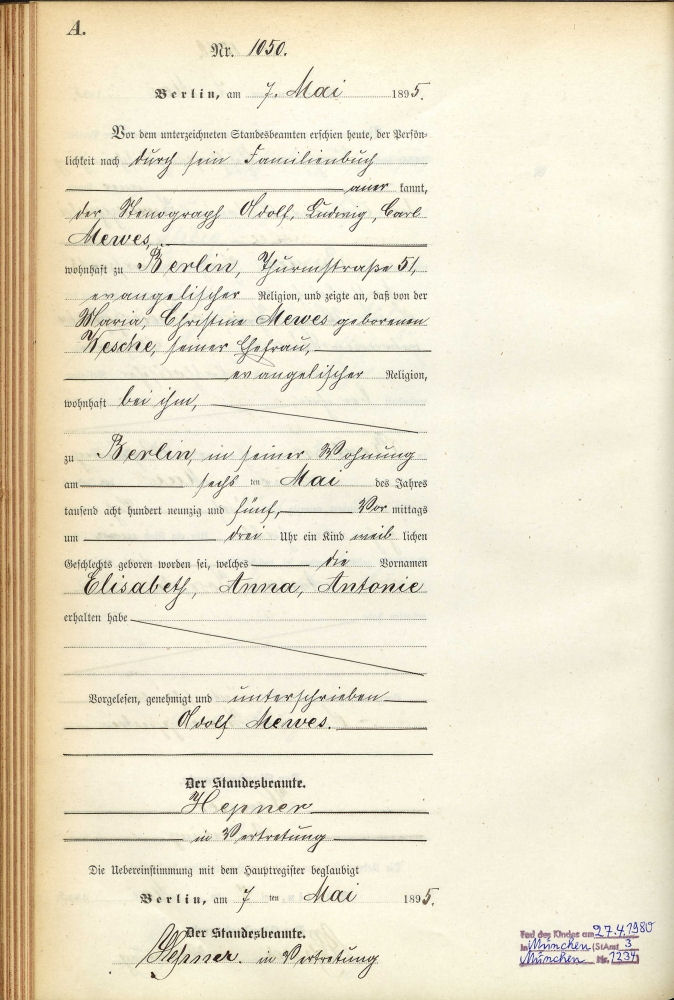 A.
Nr. 1050.
Berlin, am 7. Mai 1895.
Vor dem unterzeichneten Standesbeamten erschien heute, der Persön-
lichkeit nach durch sein Familienbuch
aner kannt,
der Stenograph Adolf, Ludwig, Carl
Mewes,
wohnhaft zu Berlin, Thurmstraße 51,
evangelischer Religion, und zeigte an, daß von der
Maria, Christine Mewes geborenen
Wesche, seiner Ehefrau,
evangelischer Religion,
wohnhaft bei ihm,
zu Berlin, in seiner Wohnung
am sechs ten Mai des Jahres
tausend acht hundert neunzig und fünf, Vor mittags
um drei Uhr ein Kind weib lichen
Geschlechts geboren worden sei, welches die Vornamen
Elisabeth, Anna, Antonie
erhalten habe
Vorgelesen, genehmigt und unterschrieben
Adolf Mewes.
Der Standesbeamte.
Hepner
in Vertretung
Die Uebereinstimmung mit dem Hauptregister beglaubigt
Berlin, am 7 ten Mai 1895.
Der Standesbeamte.
Hepner. in Vertretung
Tod des Kindes am 27.4.1980
in München (StAmt 3
München Nr. 1234)